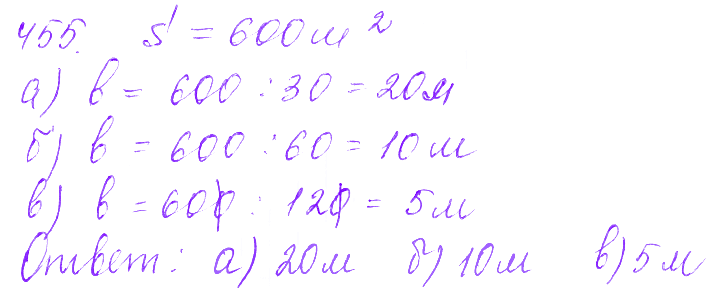 455. S = 600 м²
а) в = 600 : 30 = 20 м
б) в = 600 : 60 = 10 м
в) в = 600 : 120 = 5 м
Ответ: а) 20 м б) 10 м в) 5 м